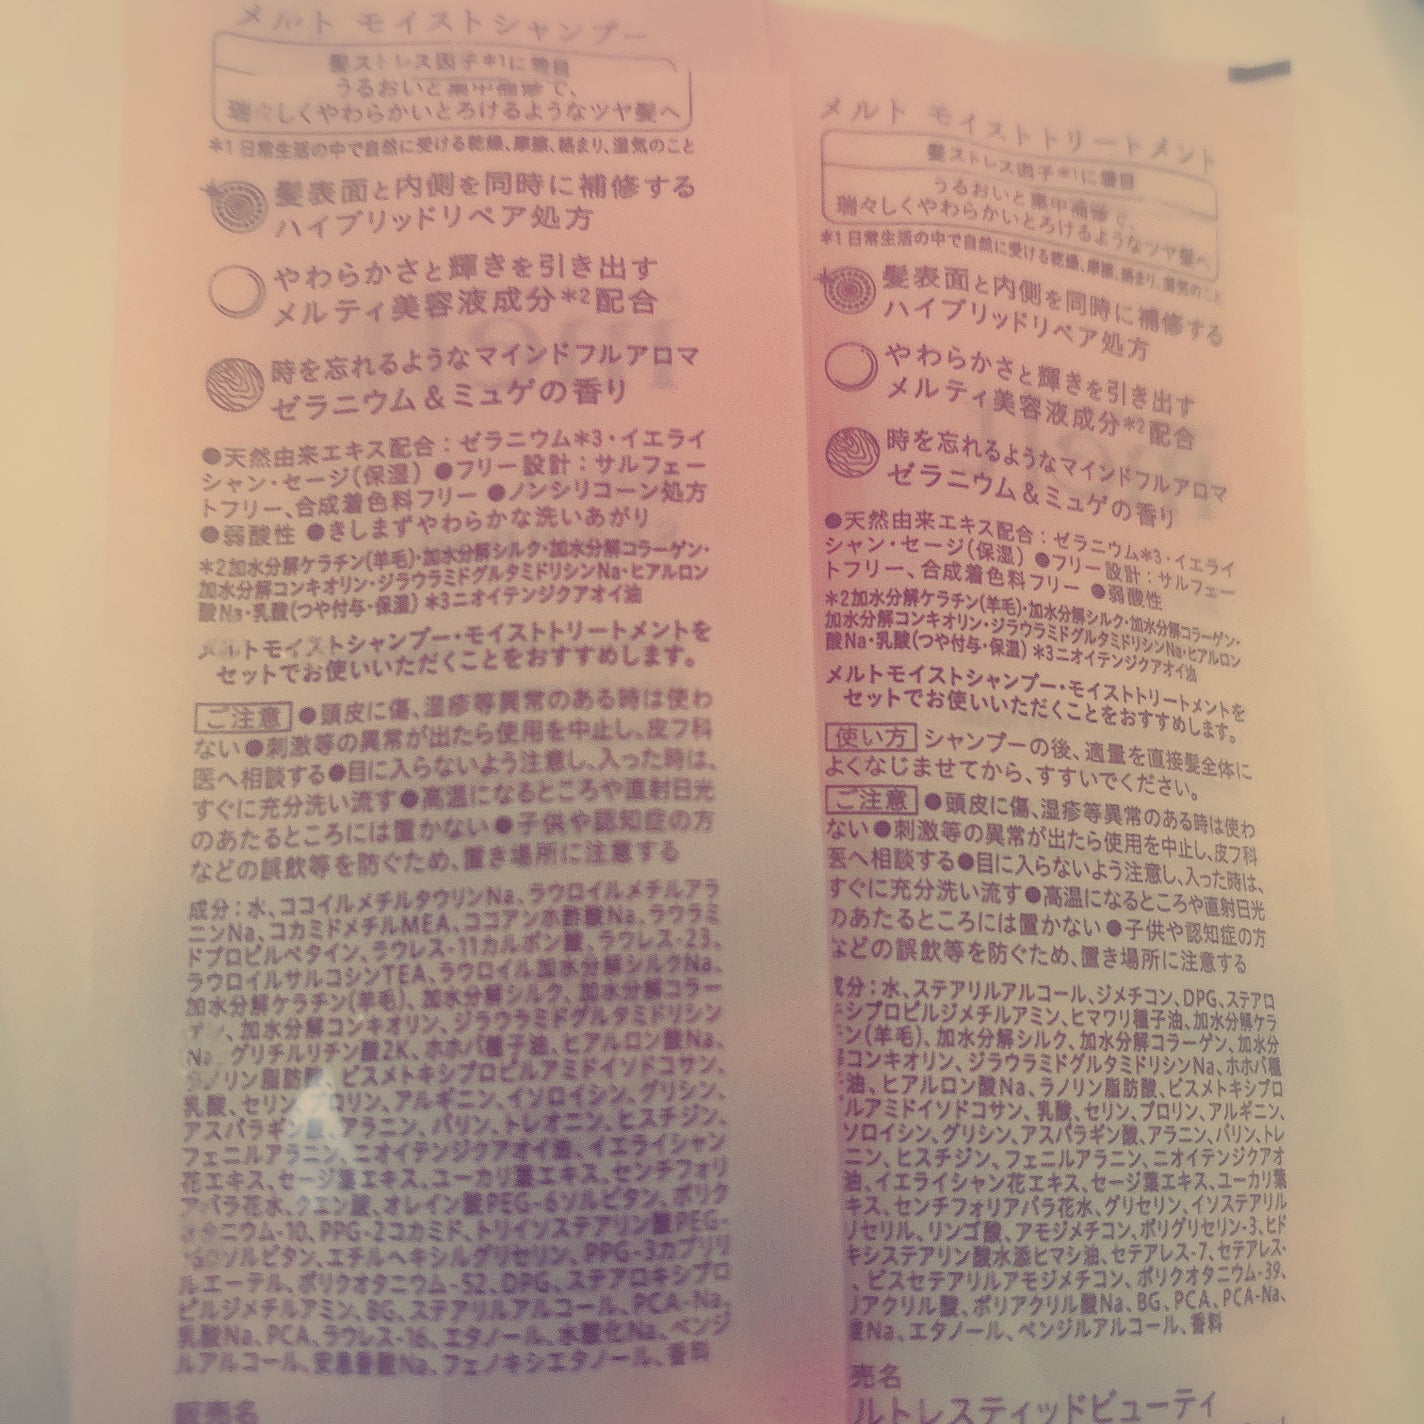 メルト モイストシャンプー
髪ストレス因子*1に着目
うるおいと集中補修で、
瑞々しくやわらかいとろけるようなツヤ髪へ
*1 日常生活の中で自然に受ける乾燥、摩擦、絡まり、湿気のこと
髪表面と内側を同時に補修する
ハイブリッドリペア処方
やわらかさと輝きを引き出す
メルティ美容液成分*2配合
時を忘れるようなマインドフルアロマ
ゼラニウム&ミュゲの香り
●天然由来エキス配合：ゼラニウム*3・イエライ
シャン・セージ(保湿) ●フリー設計：サルフェー
トフリー、合成着色料フリー ●ノンシリコーン処方
●弱酸性 ●きしまずやわらかな洗いあがり
*2加水分解ケラチン(羊毛)・加水分解シルク・加水分解コラーゲン・
加水分解コンキオリン・ジラウラミドグルタミドリシンNa・ヒアルロン
酸Na・乳酸(つや付与・保湿) *3ニオイテンジクアオイ油
メルトモイストシャンプー・モイストトリートメントを
セットでお使いいただくことをおすすめします。
ご注意 ●頭皮に傷、湿疹等異常のある時は使わ
ない●刺激等の異常が出たら使用を中止し、皮フ科
医へ相談する●目に入らないよう注意し、入った時は、
すぐに充分洗い流す●高温になるところや直射日光
のあたるところには置かない●子供や認知症の方
などの誤飲等を防ぐため、置き場所に注意する
成分：水、ココイルメチルタウリンNa、ラウロイルメチルアラ
ニンNa、コカミドメチルMEA、ココアンホ酢酸Na、ラウラミ
ドプロピルベタイン、ラウレス-11カルボン酸、ラウレス-23、
ラウロイルサルコシンTEA、ラウロイル加水分解シルクNa、
加水分解ケラチン(羊毛)、加水分解シルク、加水分解コラー
、加水分解コンキオリン、ジラウラミドグルタミドリシン
Na、グリチルリチン酸2K、ホホバ種子油、ヒアルロン酸Na、
ラノリン脂肪酸、ビスメトキシプロピルアミドイソドコサン、
乳酸、セリン、プロリン、アルギニン、イソロイシン、グリシン、
アスパラギン酸、アラニン、バリン、トレオニン、ヒスチジン、
フェニルアラニン、ニオイテンジクアオイ油、イエライシャン
花エキス、セージ葉エキス、ユーカリ葉エキス、センチフォリ
アバラ花水、クエン酸、オレイン酸PEG-6ソルビタン、ポリク
オタニウム-10、PPG-2コカミド、トリイソステアリン酸PEG-
160ソルビタン、エチルヘキシルグリセリン、PPG-3カプリリ
ルエーテル、ポリクオタニウム-52、DPG、ステアロキシプロ
ピルジメチルアミン、BG、ステアリルアルコール、PCA-Na、
乳酸Na、PCA、ラウレス-16、エタノール、水酸化Na、ベンジ
ルアルコール、安息香酸Na、フェノキシエタノール、香料
販売名
メルト モイストトリートメント
髪ストレス因子*1に着目
うるおいと集中補修で、
瑞々しくやわらかいとろけるようなツヤ髪へ
*1 日常生活の中で自然に受ける乾燥、摩擦、絡まり、湿気のこと
髪表面と内側を同時に補修する
ハイブリッドリペア処方
やわらかさと輝きを引き出す
メルティ美容液成分*2配合
時を忘れるようなマインドフルアロマ
ゼラニウム&ミュゲの香り
●天然由来エキス配合：ゼラニウム*3・イエライ
シャン・セージ(保湿) ●フリー設計：サルフェー
トフリー、合成着色料フリー ●弱酸性
*2加水分解ケラチン(羊毛)・加水分解シルク・加水分解コラーゲン・
加水分解コンキオリン・ジラウラミドグルタミドリシンNa・ヒアルロン
酸Na・乳酸(つや付与・保湿) *3ニオイテンジクアオイ油
メルトモイストシャンプー・モイストトリートメントを
セットでお使いいただくことをおすすめします。
使い方 シャンプーの後、適量を直接髪全体に
よくなじませてから、すすいでください。
ご注意 ●頭皮に傷、湿疹等異常のある時は使わ
ない●刺激等の異常が出たら使用を中止し、皮フ科
医へ相談する●目に入らないよう注意し、入った時は、
すぐに充分洗い流す●高温になるところや直射日光
のあたるところには置かない●子供や認知症の方
などの誤飲等を防ぐため、置き場所に注意する
成分：水、ステアリルアルコール、ジメチコン、DPG、ステアロ
キシプロピルジメチルアミン、ヒマワリ種子油、加水分解ケラ
ン(羊毛)、加水分解シルク、加水分解コラーゲン、加水分
コンキオリン、ジラウラミドグルタミドリシンNa、ホホバ種
油、ヒアルロン酸Na、ラノリン脂肪酸、ビスメトキシプロ
ルアミドイソドコサン、乳酸、セリン、プロリン、アルギニン、
ソロイシン、グリシン、アスパラギン酸、アラニン、バリン、トレ
ニン、ヒスチジン、フェニルアラニン、ニオイテンジクアオ
油、イエライシャン花エキス、セージ葉エキス、ユーカリ葉
キス、センチフォリアバラ花水、グリセリン、イソステアリル
リセリル、リンゴ酸、アモジメチコン、ポリグリセリン-3、ヒド
キシステアリン酸水添ヒマシ油、セテアレス-7、セテアレス-
、ビスセテアリルアモジメチコン、ポリクオタニウム-39、
リアクリル酸、ポリアクリル酸Na、BG、PCA、PCA-Na、
酸Na、エタノール、ベンジルアルコール、香料
売名
ルトレスティッドビューティ